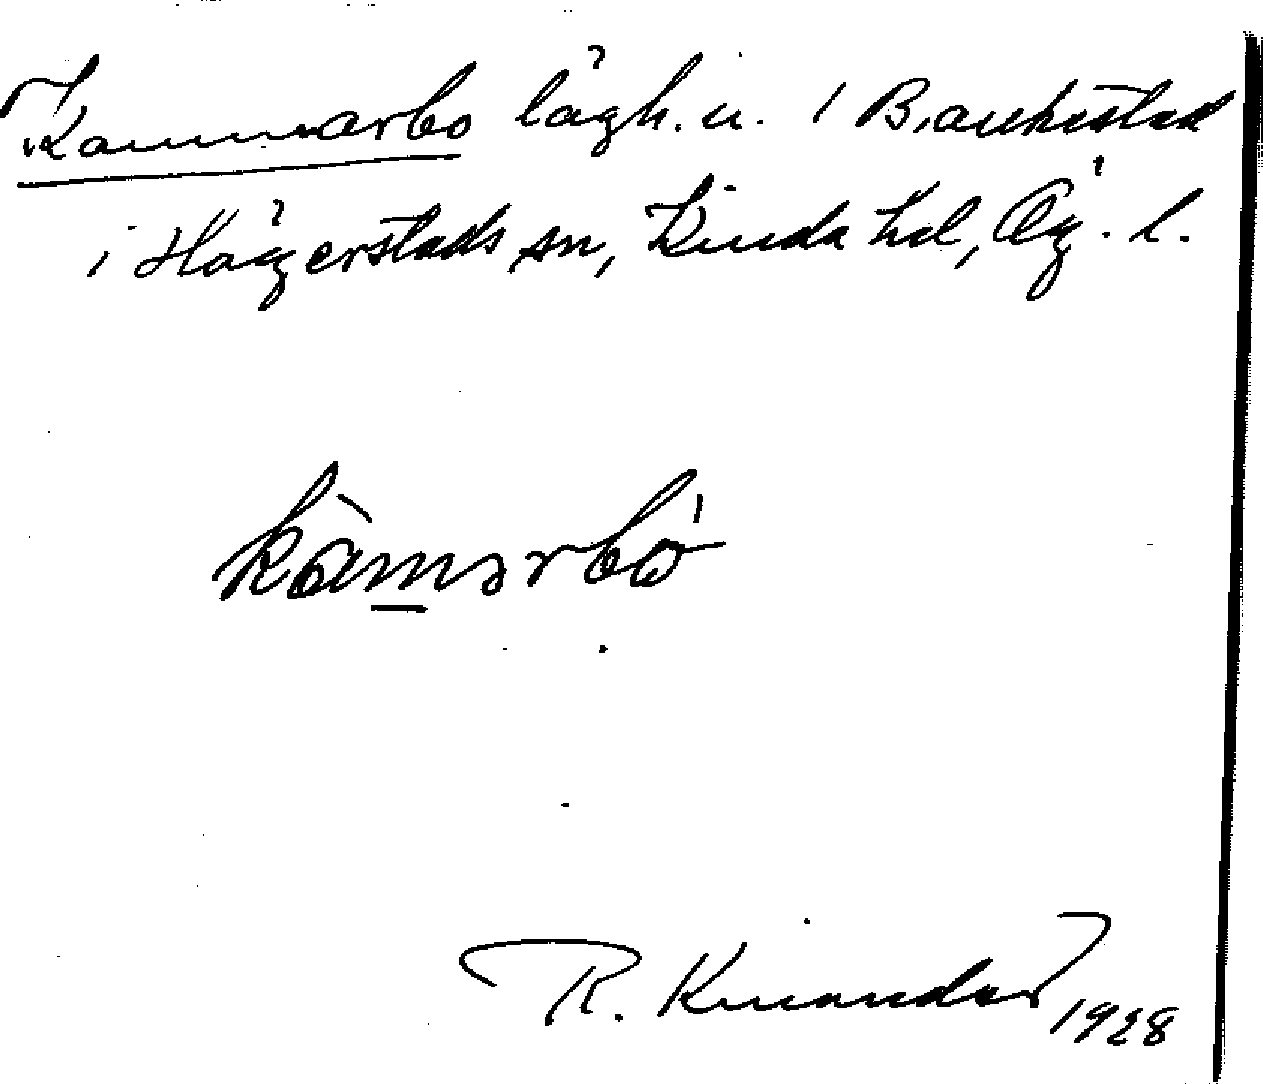 Kammarbo lägh. u. / Bankestad
i Hägerstads sn, Kinda hd, Ög. l.
kàmərbó
R. Kinander 1928